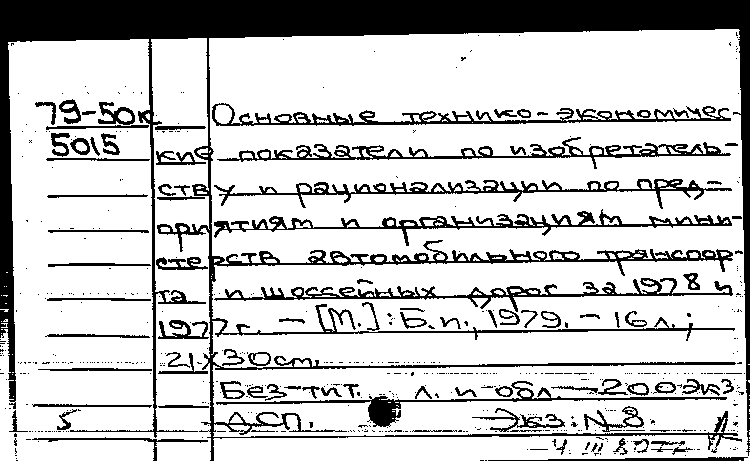 79-50к Основные технико-экономичес-
5015 кие показатели по изобретатель-
ству и рационализации по пред-
приятиям и организациям мини-
стерств автомобильного транспор-
та и шоссейных дорог за 1978 и
1977 г. — [М.]: Б.и., 1979. — 16 л.;
21х30 см.
Без тит. л. и обл. — 200 экз
5 ДСП. Экз: N 8.